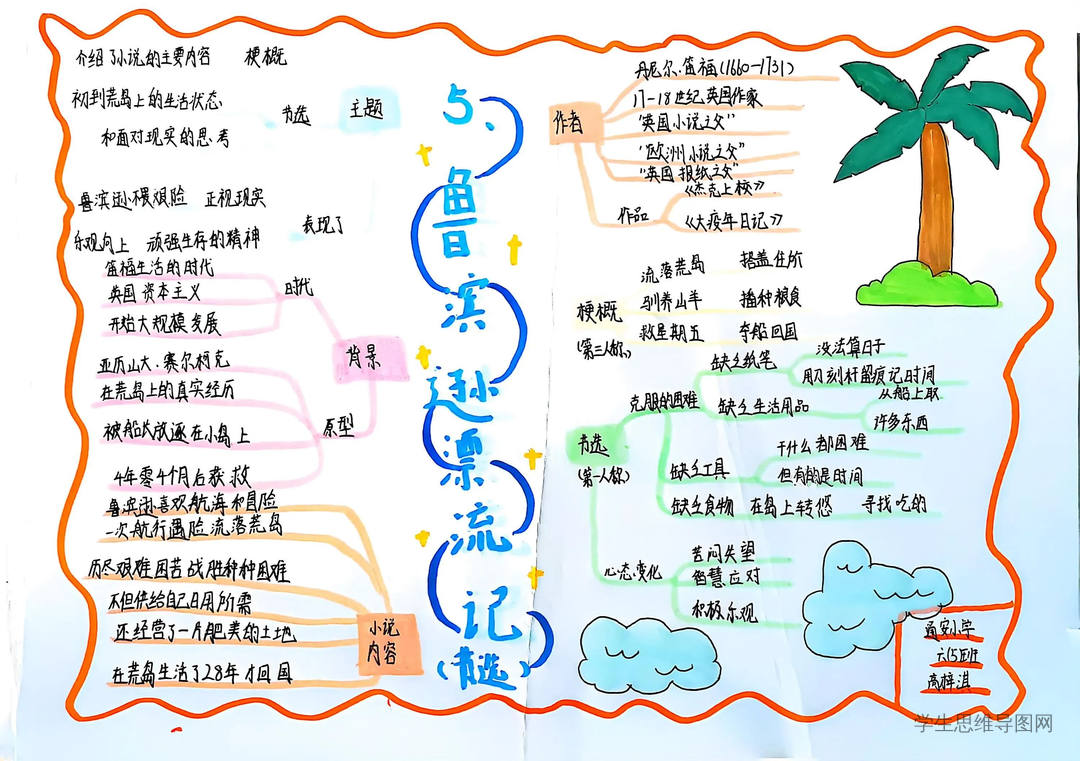 5、鲁滨逊漂流记
(节选)
主题
介绍了小说的主要内容 梗概
初到荒岛上的生活状态
和面对现实的思考
节选
鲁滨逊不畏艰险 正视现实
乐观向上 顽强生存的精神
表现了
背景
时代
笛福生活的时代
英国资本主义
开始大规模发展
原型
亚历山大·赛尔柯克
在荒岛上的真实经历
被船长放逐在小岛上
4年零4个月后获救
小说
内容
鲁滨逊喜欢航海和冒险
一次航行遇险流落荒岛
历尽艰难困苦战胜种种困难
不但供给自己日用所需
还经营了一片肥美的土地
在荒岛生活了28年才回国
作者
丹尼尔·笛福(1660—1731)
17-18世纪英国作家
"英国小说之父"
"欧洲小说之父"
"英国报纸之父"
作品
《杰克上校》
《大疫年日记》
梗概
(第三人称)
流落荒岛 搭盖住所
驯养山羊 播种粮食
救星期五 夺船回国
节选
(第一人称)
克服的困难
缺乏纸笔
没法算日子
用刀刻杆留痕记时间
缺乏生活用品
从船上取
许多东西
缺乏工具
干什么都困难
但有的是时间
缺乏食物 在岛上转悠 寻找吃的
心态变化
苦闷失望
智慧应对
积极乐观
通安小学
六(5)班
高梓淇
学生思维导图网